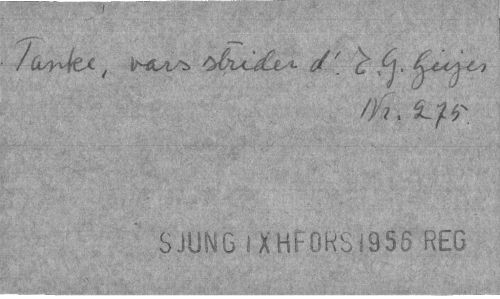 Tanke, vars strider d'. E. G. Geijer
Nr. 275.
SJUNG IX HFORS 1956 REG